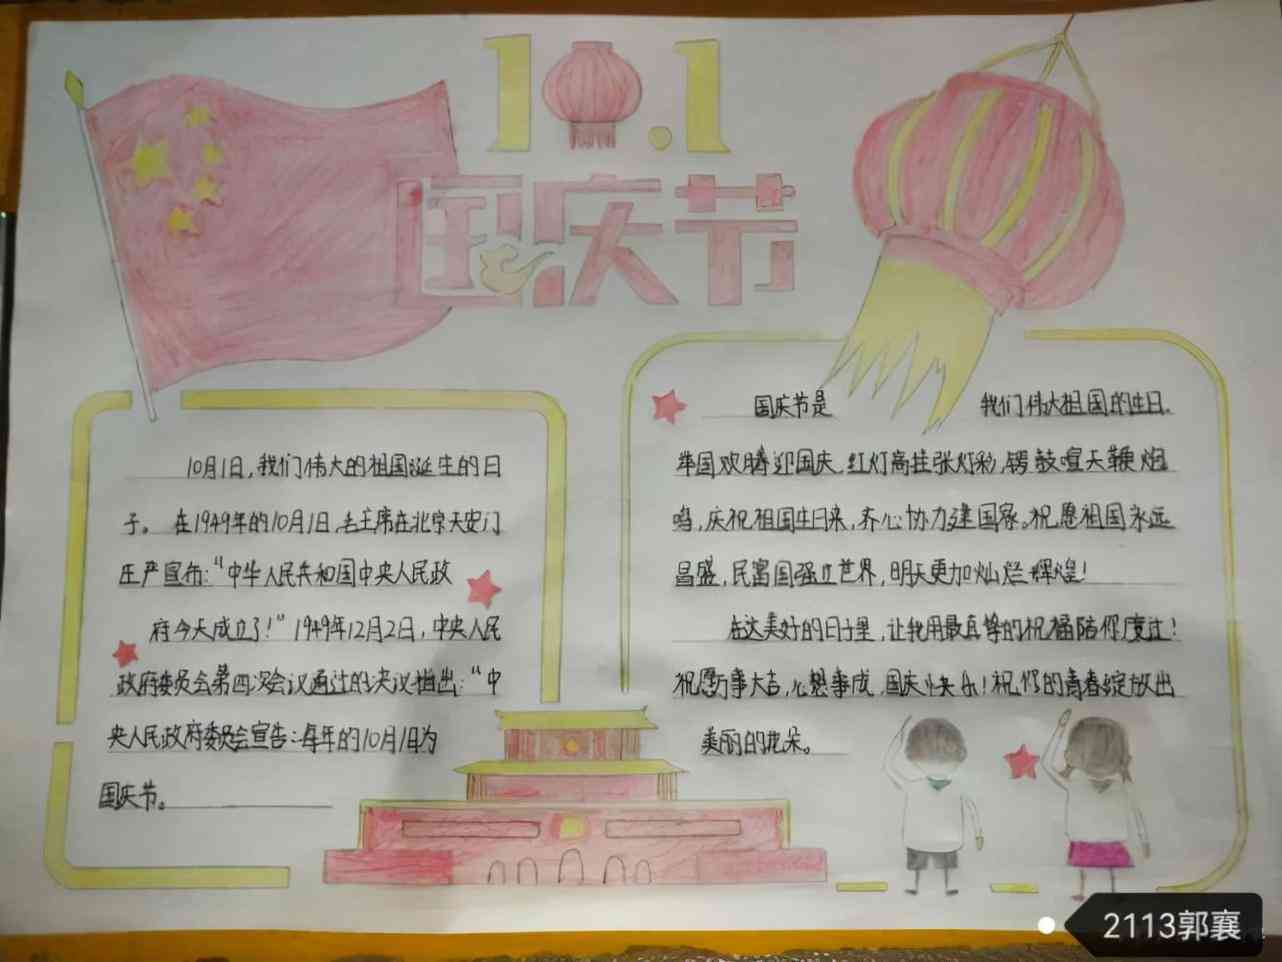 10.1
国庆节
10月1日，我们伟大的祖国诞生的日
子。 在1949年的10月1日，毛主席在北京天安门
庄严宣布：“中华人民共和国中央人民政
府今天成立了！”1949年12月2日，中央人民
政府委员会第四次会议通过的决议指出：“中
央人民政府委员会宣告：每年的10月1日为
国庆节。
国庆节是 我们伟大祖国的生日.
举国欢腾迎国庆，红灯高挂张灯彩，锣鼓喧天鞭炮
鸣，庆祝祖国生日来，齐心协力建国家。祝愿祖国永远
昌盛，民富国强立世界，明天更加灿烂辉煌！
在这美好的日子里，让我用最真挚的祝福陪你度过！
祝愿万事大吉，心想事成，国庆快乐！祝你的青春绽放出
美丽的花朵。
2113郭襄